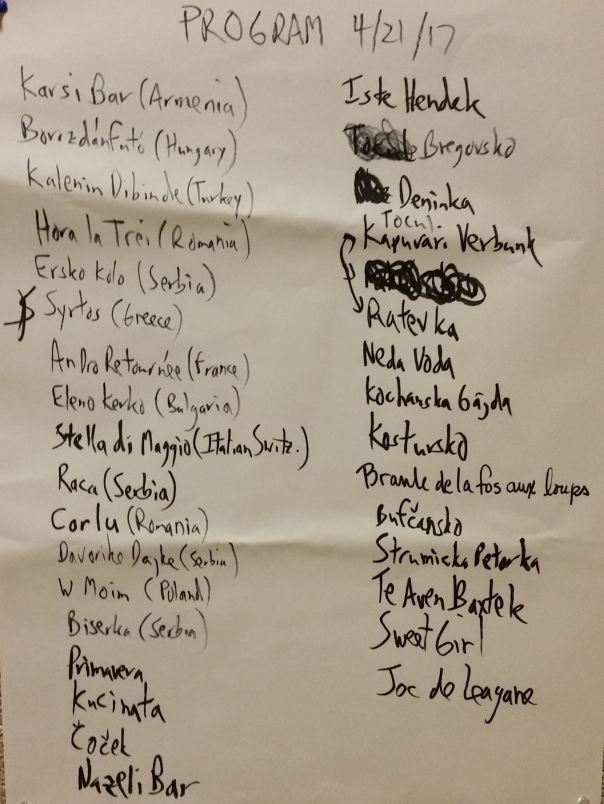 PROGRAM 4/21/17
Karsi Bar (Armenia)
Borozdánfutó (Hungary)
Kalenin Dibinde (Turkey)
Hora la Trei (Romania)
Ersko Kolo (Serbia)
Syrtos (Greece)
An Dro Retournée (France)
Eleno Kerko (Bulgaria)
Stella di Maggio (Italian Switz.)
Raca (Serbia)
Corlu (Romania)
Davorike Dajke (Serbia)
W Moim (Poland)
Biserka (Serbia)
Primavera
Kucinata
Čoček
Nazeli Bar
Iste Hendek
Bregovsko
Deninka
Tocul
Kapuvári Verbunk
Ratevka
Neda Voda
Kochanska Gajda
Kostursko
Branle de la fos aux loups
Bufčansko
Strumicka Petorka
Te Aven Baxtele
Sweet Girl
Joc de Leagane